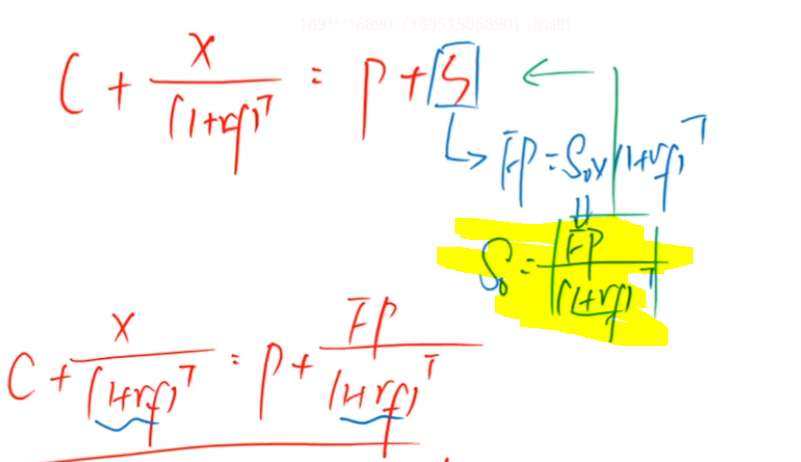 C + X/(1+rf)^T = P + S
FP = S₀ × (1+rf)^T
S₀ = FP/(1+rf)^T
C + X/(1+rf)^T = P + FP/(1+rf)^T